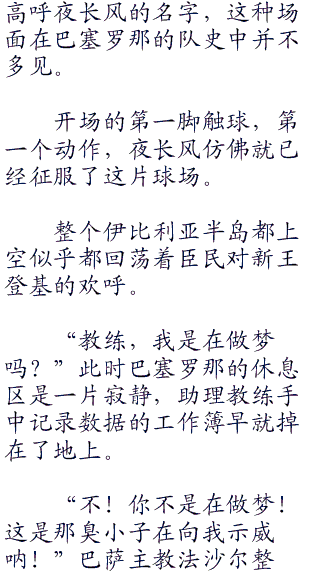 高呼夜长风的名字，这种场
面在巴塞罗那的队史中并不
多见。
开场的第一脚触球，第
一个动作，夜长风仿佛就已
经征服了这片球场。
整个伊比利亚半岛都上
空似乎都回荡着臣民对新王
登基的欢呼。
“教练，我是在做梦
吗？”此时巴塞罗那的休息
区是一片寂静，助理教练手
中记录数据的工作簿早就掉
在了地上。
“不！你不是在做梦！
这是那臭小子在向我示威
呐！”巴萨主教法沙尔整